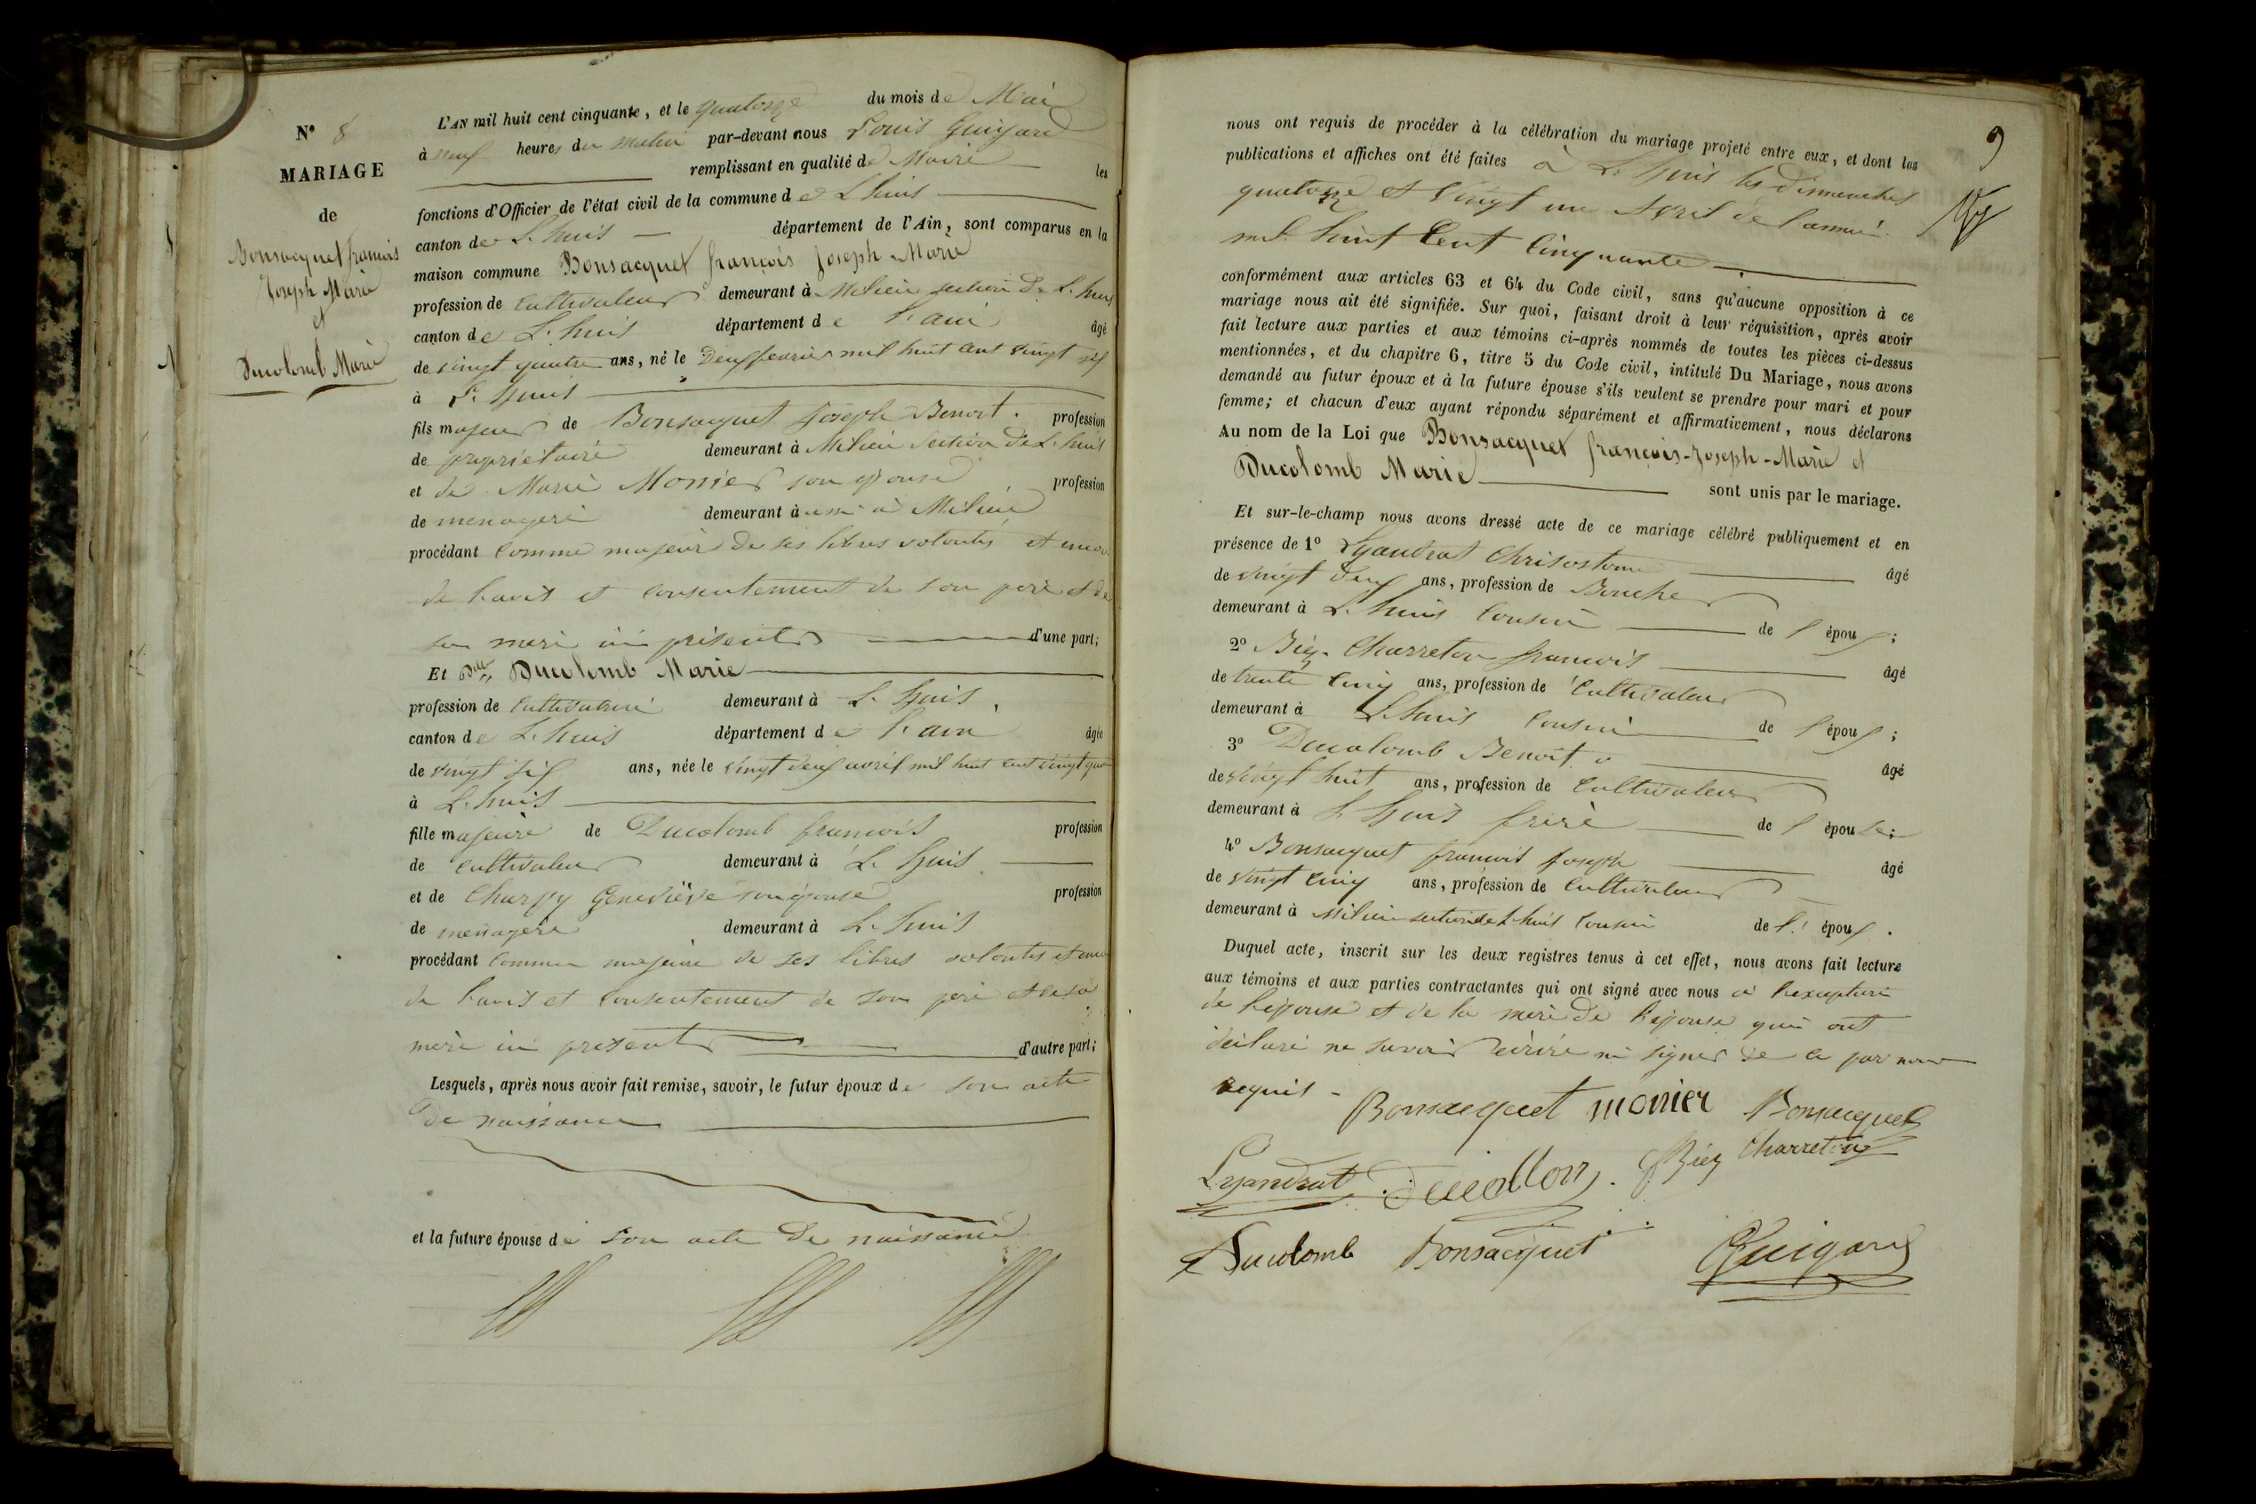 N° 8
MARIAGE
de
Bonsacquet francois
Joseph Marie
et
Ducolomb Marie
L'AN mil huit cent cinquante, et le quatorze du mois de Mai
à neuf heures du matin par-devant nous Louis Guigard
remplissant en qualité de Maire les
fonctions d'Officier de l'état civil de la commune de Lhuis
canton de L. huis département de l'Ain, sont comparus en la
maison commune Bonsacquet françois Joseph-Marie
profession de cultivateur demeurant à Milieu section de L. huis
canton de L. huis département de l'ain âgé
de vingt quatre ans, né le Deux fevrier mil huit cent vingt six
à L. huis
fils majeur de Bonsacquet Joseph Benoit. profession
de propriétaire demeurant à Milieu section de L. huis
et de Marie Monier son épouse profession
de menagere demeurant à aussi à Milieu
procédant comme majeur de ses libres volontés et encore
de l'avis et consentement de son père et de
sa mere ici présents d'une part;
Et Dlle Ducolomb Marie
profession de cultivatrice demeurant à L. huis,
canton de L. huis département de l'ain âgée
de vingt six ans, née le vingt deux avril mil huit cent vingt quatre
à L. huis
fille majeure de Ducolomb francois profession
de cultivateur demeurant à L. huis
et de Charpy Geneviève son épouse profession
de menagère demeurant à L. huis
procédant comme majeure de ses libres volontés et encore
de l'avis et consentement de son père et de sa
mère ici présents d'autre part;
Lesquels, après nous avoir fait remise, savoir, le futur époux de son acte
de naissance
et la future épouse de son acte de naissance
9
nous ont requis de procéder à la célébration du mariage projeté entre eux, et dont les
publications et affiches ont été faites à L. huis les dimanches
quatorze et vingt un avril de l'année
mil huit cent cinquante
conformément aux articles 63 et 64 du Code civil, sans qu'aucune opposition à ce
mariage nous ait été signifiée. Sur quoi, faisant droit à leur réquisition, après avoir
fait lecture aux parties et aux témoins ci-après nommés de toutes les pièces ci-dessus
mentionnées, et du chapitre 6, titre 5 du Code civil, intitulé Du Mariage, nous avons
demandé au futur époux et à la future épouse s'ils veulent se prendre pour mari et pour
femme; et chacun d'eux ayant répondu séparément et affirmativement, nous déclarons
Au nom de la Loi que Bonsacquet françois-Joseph-Marie et
Ducolomb Marie sont unis par le mariage.
Et sur-le-champ nous avons dressé acte de ce mariage célébré publiquement et en
présence de 1° Lyaudrat Chrisostome âgé
de vingt deux ans, profession de Boucher
demeurant à L. huis cousin de l époux;
2° Biez-Charreton francois âgé
de trente cinq ans, profession de cultivateur
demeurant à L. huis cousin de l époux;
3° Ducolomb Benoit âgé
de vingt huit ans, profession de cultivateur
demeurant à L. huis frère de l épouse;
4° Bonsacquet francois Joseph âgé
de vingt cinq ans, profession de cultivateur
demeurant à Milieu section de L. huis cousin de l' époux.
Duquel acte, inscrit sur les deux registres tenus à cet effet, nous avons fait lecture
aux témoins et aux parties contractantes qui ont signé avec nous à l'exception
de l'épouse et de la mère de l'épouse qui ont
déclaré ne savoir écrire ni signer de ce par nous
requis -
Bonsacquet monier Bonsacquet
Lyaudrat Biez Charreton
Ducolomb Bonsacquet Guigard